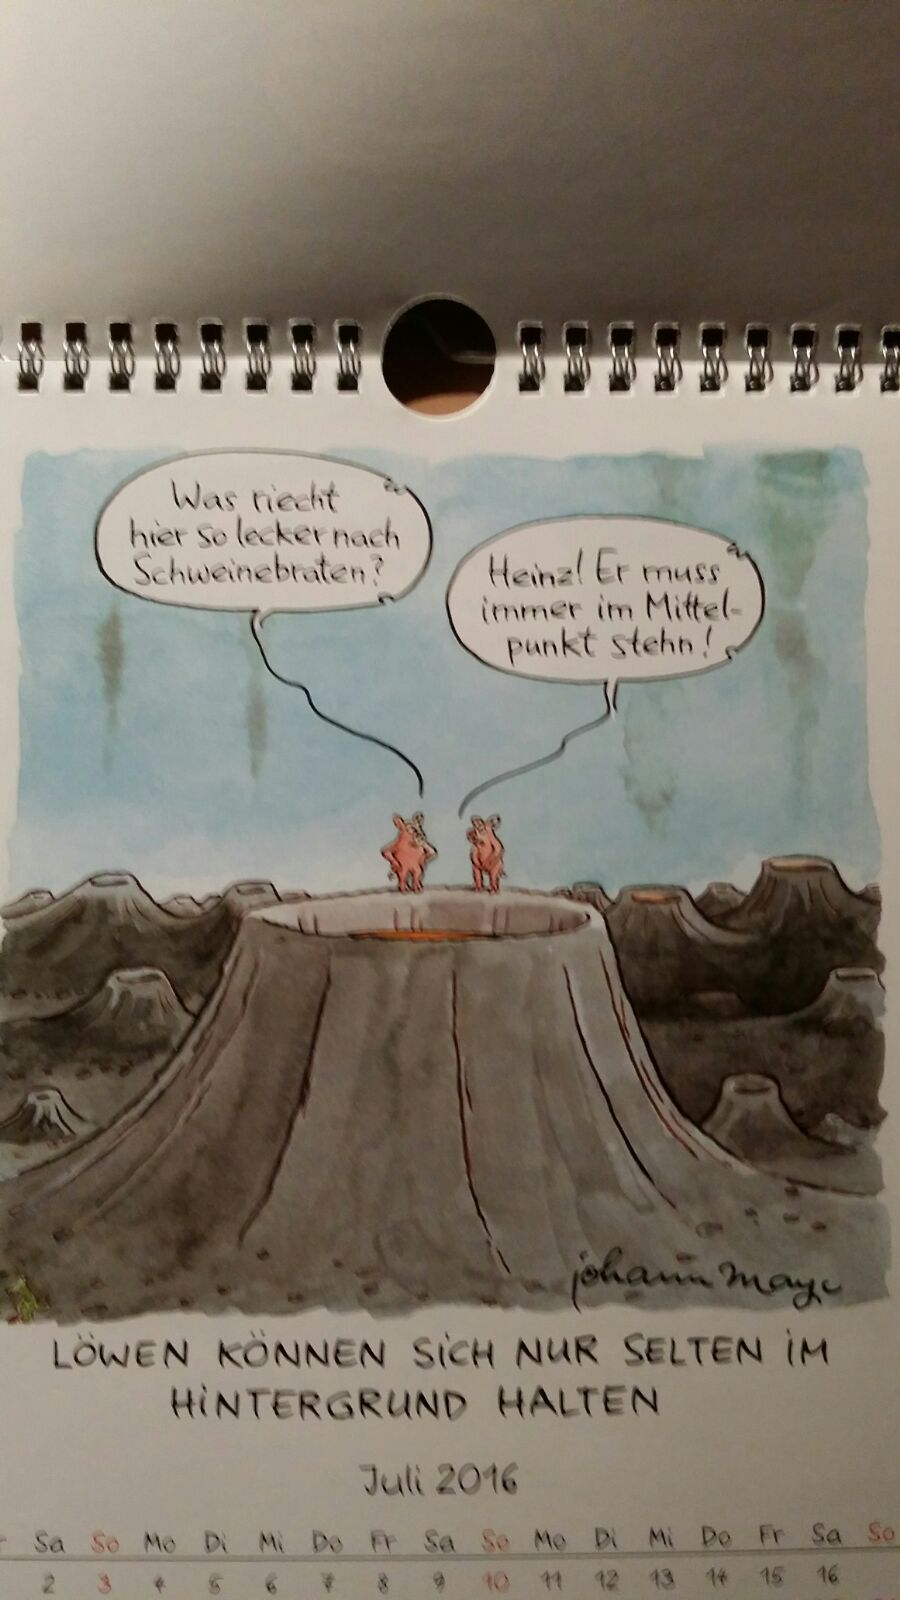 Was riecht
hier so lecker nach
Schweinebraten?
Heinz! Er muss
immer im Mittel-
punkt stehn!
johann mayr
LÖWEN KÖNNEN SICH NUR SELTEN IM
HINTERGRUND HALTEN
Juli 2016
Sa So Mo Di Mi Do Fr Sa So Mo Di Mi Do Fr Sa So
2 3 4 5 6 7 8 9 10 11 12 13 14 15 16